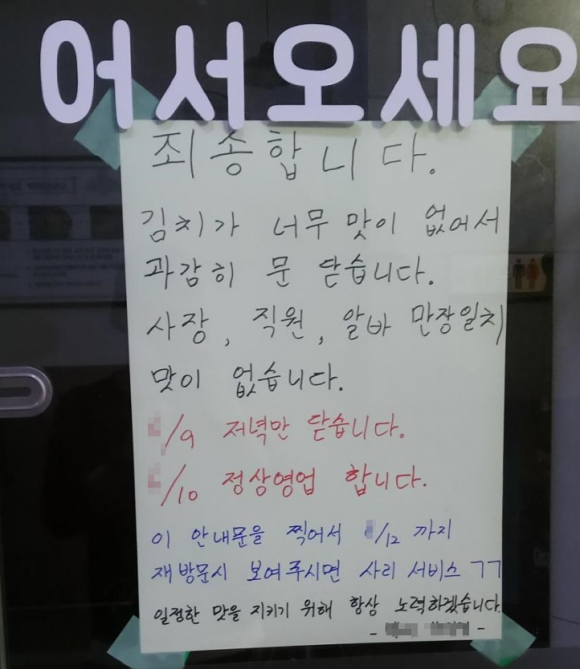 어서오세요
죄송합니다.
김치가 너무 맛이 없어서
과감히 문 닫습니다.
사장, 직원, 알바 만장일치
맛이 없습니다.
/9 저녁만 닫습니다.
/10 정상영업 합니다.
이 안내문을 찍어서 /12 까지
재방문시 보여주시면 사리 서비스 ㄱㄱ
일정한 맛을 지키기 위해 항상 노력하겠습니다